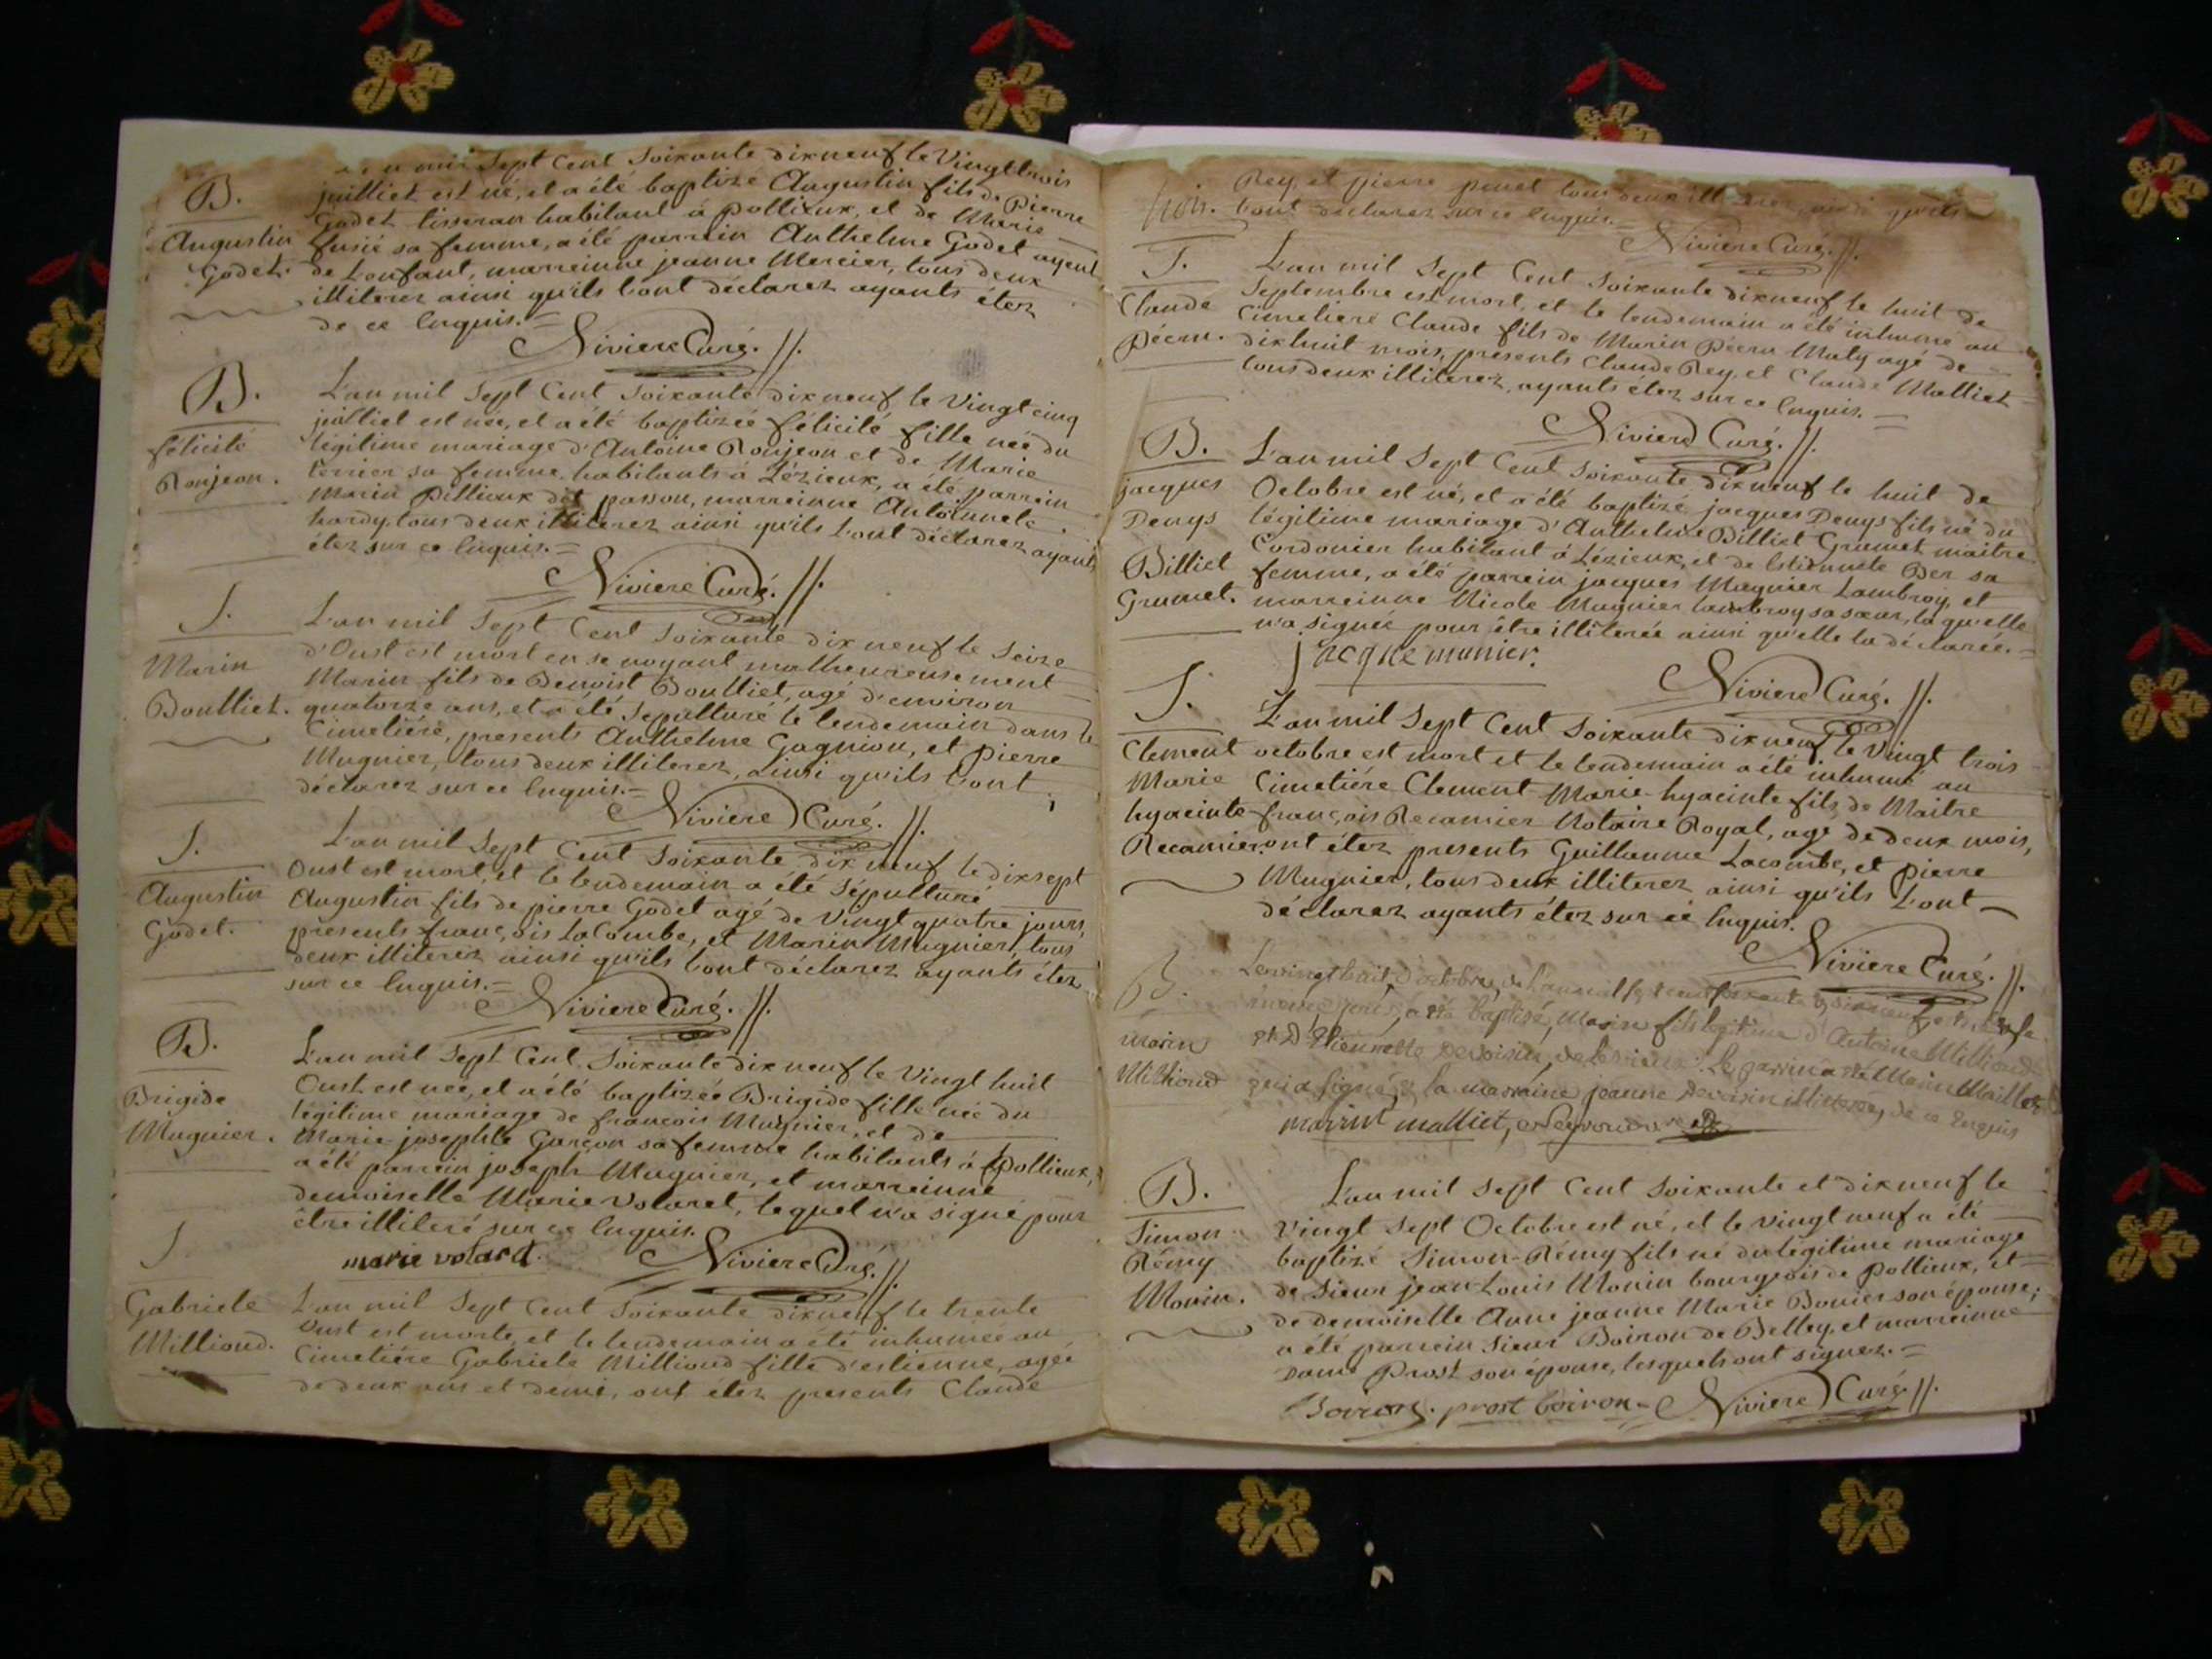 B.
Augustin
Godet.
mil Sept Cent Soixante dixneuf le Vingt trois
juilliet est né, et a été baptizé Augustin fils de Pierre
Godet tisseran habitant à pollieux, et de Marie
sa femme, a été parrein Anthelme Godet ayeul
de L'enfant, marreinne jeanne Mercier, tous deux
illiterez ainsi qu'ils L'ont déclarez ayants étez
de ce Enquis.=
Niviere Curé.//.
B.
félicité
Ronjeon.
L'an mil Sept Cent Soixante dixneuf le Vingt cinq
juilliet est née, et a été baptizée félicité fille née du
légitime mariage d'Antoine Ronjeon et de Marie
terrier sa femme habitants à Lézieux, a été parrein
Marin Pillioux de passon, marreinne Antoinnete
hardy, tous deux illiterez ainsi qu'ils L'ont déclarez ayants
étez sur ce Enquis.=
Niviere Curé.//.
S.
Marin
Boulliet.
L'an mil Sept Cent Soixante dix neuf le Seize
d'Oust est mort en se noyant malheureusement
Marin fils de Benoist Boulliet, agé d'environ
quatorze ans, et a été Sépulturé le lendemain dans le
Cimetiére, presents Anthelme Gagnion, et Pierre
Mugnier, tous deux illiterez, ainsi qu'ils L'ont
déclarez sur ce Enquis.=
Niviere Curé.//.
S.
Augustin
Godet.
L'an mil Sept Cent Soixante dix neuf le dixsept
Oust est mort, et le lendemain a été Sépulturé
Augustin fils de pierre Godet agé de Vingt quatre jours,
présents françois LaCombe, et Marin Mugnier, tous
deux illiterez ainsi qu'ils L'ont déclarez ayants étez
sur ce Enquis.=
Niviere Curé.//.
B.
Brigide
Mugnier.
L'an mil Sept Cent Soixante dix neuf le Vingt huit
Oust est née, et a été baptizée Brigide fille née du
légitime mariage de françois Mugnier, et de
Marie josephte Garçon sa femme habitants à Pollieux,
a été parrein joseph Mugnier, et marreinne
demoiselle Marie Volaret, lequel n'a signé pour
être illiteré sur ce Enquis.
marie volard.
Niviere Curé.//.
S
Gabriele
Millioud.
L'an mil Sept Cent Soixante dixneuf le trente
Oust est morte, et le lendemain a été inhumée au
Cimetiére Gabriele Millioud fille d'estienne, agée
de deux ans et demi, ont étez presents Claude
Rey, et pierre tous deux illiterez, ainsi qu'ils
L'ont déclarez sur ce Enquis.=
Niviere Curé.//.
S.
Claude
Pécru.
L'an mil Sept Cent Soixante dixneuf le huit de
Septembre est mort, et le lendemain a été inhumé au
Cimetiere Claude fils de Marin Pécru Maty agé de
dixhuit mois, présents Claude Rey, et Claude Malliet
tous deux illiterez, ayants étez sur ce Enquis.=
Niviere Curé.//.
B.
jacques
Denys
Billiet
Grumet.
L'an mil Sept Cent Soixante dixneuf le huit de
Octobre est né, et a été baptizé jacques Denys fils né du
légitime mariage d'Anthelme Billiet Grumet maitre
Cordonier habitant à Lézieux, et de Estiennete Ber sa
femme, a été parrein jacques Mugnier Lambroy, et
marreinne Nicole Mugnier Lambroy sa sœur, la qu'elle
n'a signée pour être illiterée ainsi qu'elle la déclarée.=
jacque munier.
Niviere Curé.//.
S.
Clement
Marie
hyacinte
Recamier.
L'an mil Sept Cent Soixante dix neuf le Vingt trois
octobre est mort et le lendemain a été inhumé au
Cimetiére Clement Marie-hyacinte fils de Maitre
françois Recamier Notaire Royal, agé de deux mois,
ont étez presents Guillaume Lacombe, et Pierre
Mugnier, tous deux illiterez ainsi qu'ils L'ont
déclarez ayants étez sur ce Enquis.
Niviere Curé.//.
B.
marin
Millioud
Le vingt huit d'octobre, de l'an mil sept cent soixante et dixneuf, est né et le
meme jour, a été baptisé, Marin fils legitime d'Antoine Millioud
et D'Etiennette de Lezieux. Le parrin a été Marin Malliet
qui a signé, et la marraine jeanne illiterée, de ce Enquis
marin malliet,
B.
Simon
Rémy
Monin.
L'an mil Sept Cent Soixante et dixneuf le
Vingt Sept Octobre est né, et le vingt neuf a été
baptizé Simon-Rémy fils né du légitime mariage
de Sieur jean-Louis Monin bourgeois de Pollieux, et
de demoiselle Anne jeanne Marie Bonier son épouse;
a été parrein Sieur Boiron de Belley, et marreinne
Dame Prost son épouse, lesquels ont signez.=
Boiron. prost boiron.= Niviere Curé.//.